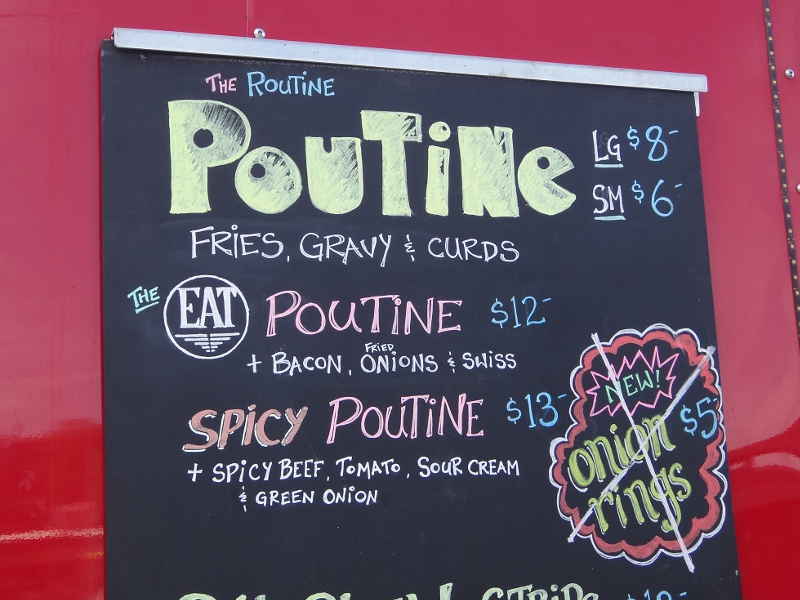 THE ROUTINE
POUTINE
LG $8-
SM $6-
FRIES, GRAVY & CURDS
THE EAT POUTINE $12-
+ BACON, FRIED ONIONS & SWISS
SPICY POUTINE $13-
+ SPICY BEEF, TOMATO, SOUR CREAM
& GREEN ONION
NEW!
$5-
onion
rings